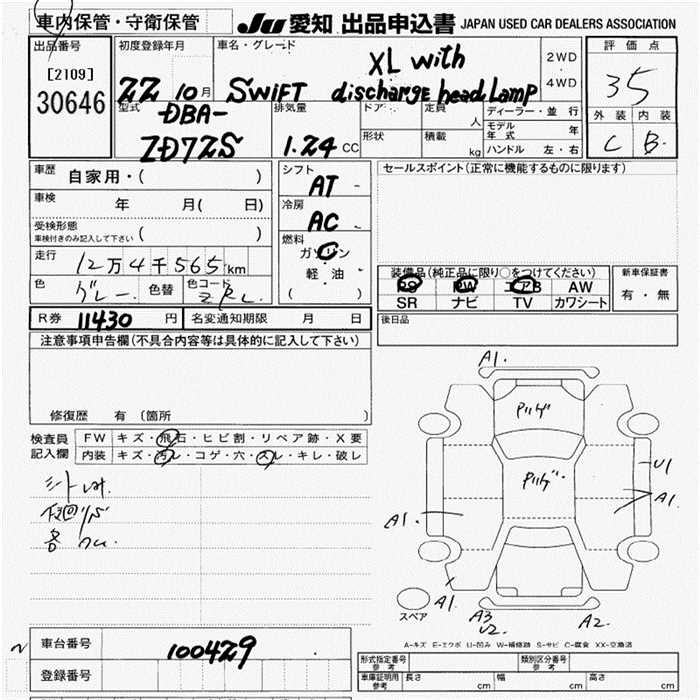 車内保管・守衛保管
JU 愛知 出品申込書 JAPAN USED CAR DEALERS ASSOCIATION
出品番号
[2109]
30646
初度登録年月
22 10月
車名・グレード
SWiFT
XL with
discharge head Lamp
2WD
4WD
評価点
35
外装 内装
C B
型式
-DBA-
ZD72S
排気量
1.24 CC
ドア
定員
人
形状
積載
kg
ディーラー・並行
モデル年式 年
ハンドル 左・右
車歴 自家用・( )
車検 年 月( 日)
受検形態
車検付きのみ記入して下さい ( )
走行 12万4千565km
色 グレー 色替 色コード
シフト
AT
冷房
AC
燃料
ガソリン
軽油
( )
セールスポイント(正常に機能するものに限ります)
装備品(純正品に限り○をつけてください)
PS PW エアB AW
SR ナビ TV カワシート
新車保証書
有・無
R券 11430 円 名変通知期限 月 日
後日品
注意事項申告欄(不具合内容等は具体的に記入して下さい)
修復歴 有(箇所 )
検査員
記入欄
FW キズ・飛石・ヒビ割・リペア跡・X要
内装 キズ・汚レ・コゲ・穴・スレ・キレ・破レ
A1.
U1
A1.
A1.
A1.
A3
U2.
A2.
スペア
A-キズ E-エクボ U-凹み W-補修跡 S-サビ C-腐食 XX-交換済
車台番号 100429
登録番号
形式指定番号
参考
類別区分番号
参考
車庫証明用
参考
長さ cm 幅 cm 高さ cm